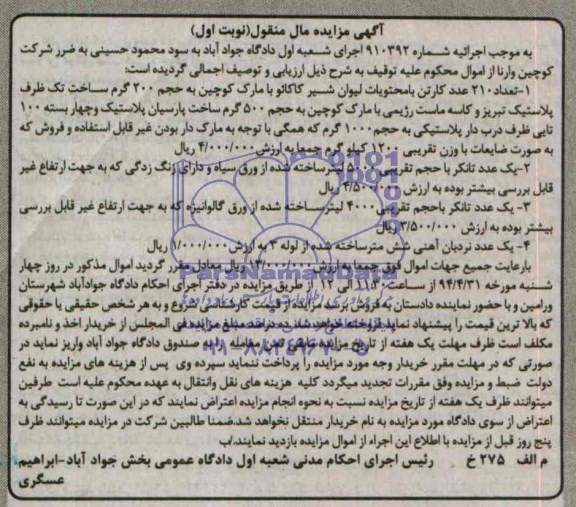 آگهی مزایده مال منقول(نوبت اول)
به موجب اجرائیه شماره ۹۱۰۳۹۲ اجرای شعبه اول دادگاه جواد آباد به سود محمود حسینی به ضرر شرکت
کوچین وارنا از اموال محکوم علیه توقیف به شرح ذیل ارزیابی و توصیف اجمالی گردیده است:
۱-تعداد۲۱۰ عدد کارتن بامحتویات لیوان شیر کاکائو با مارک کوچین به حجم ۲۰۰ گرم ساخت تک ظرف
پلاستیک تبریز و کاسه ماست رژیمی با مارک کوچین به حجم ۵۰۰ گرم ساخت پارسیان پلاستیک وچهار بسته ۱۰۰
تایی ظرف درب دار پلاستیکی به حجم۱۰۰۰ گرم که همگی با توجه به مارک دار بودن غیر قابل استفاده و فروش که
به صورت ضایعات با وزن تقریبی ۱۲۰۰ کیلو گرم جمعا به ارزش ۴/۰۰۰/۰۰۰ ریال
۲-یک عدد تانکر با حجم تقریبی لیترساخته شده از ورق سیاه و دارای زنگ زدگی که به جهت ارتفاع غیر
قابل بررسی بیشتر بوده به ارزش ۴/۵۰۰/۰۰۰ ریال
۳- یک عدد تانکر باحجم تقریبی۴۰۰۰ لیترساخته شده از ورق گالوانیزه که به جهت ارتفاع غیر قابل بررسی
بیشتر بوده به ارزش ۳/۵۰۰/۰۰۰ ریال
۴- یک عدد نردبان آهنی شش مترساخته شده از لوله ۳ به ارزش ۱/۰۰۰/۰۰۰ ریال
بارعایت جمیع جهات اموال فوق جمعا به ارزش ۱۳/۰۰۰/۰۰۰ ریال معادل مقرر گردید اموال مذکور در روز چهار
شنبه مورخه ۹۴/۴/۳۱ از ساعت ۱۱:۳۰ الی ۱۲ از طریق مزایده در دفتر اجرای احکام دادگاه جوادآباد شهرستان
ورامین و با حضور نماینده دادستان به فروش برسد مزایده از قیمت کارشناسی شروع و به هر شخص حقیقی یا حقوقی
که بالا ترین قیمت را پیشنهاد نماید فروخته خواهد شد.ده درصد مبلغ مزایده فی المجلس از خریدار اخذ و نامبرده
مکلف است ظرف مهلت یک هفته از تاریخ مزایده مابقی ثمن معامله را به صندوق دادگاه جواد آباد واریز نماید در
صورتی که در مهلت مقرر خریدار وجه مورد مزایده را پرداخت ننماید سپرده وی پس از هزینه های مزایده به نفع
دولت ضبط و مزایده وفق مقررات تجدید میگردد کلیه هزینه های نقل وانتقال به عهده محکوم علیه است طرفین
میتوانند ظرف یک هفته از تاریخ مزایده نسبت به نحوه انجام مزایده اعتراض نمایند که در این صورت تا رسیدگی به
اعتراض از سوی دادگاه مورد مزایده به نام خریدار منتقل نخواهد شد.ضمنا طالبین شرکت در مزایده میتوانند ظرف
پنج روز قبل از مزایده با اطلاع این اجراء از اموال مزایده بازدید نمایند/ب
م الف ۲۷۵ خ رئیس اجرای احکام مدنی شعبه اول دادگاه عمومی بخش جواد آباد-ابراهیم
عسگری
ParsNamadData
۰۲۱-۸۸۳۴۹۶۷۰-۵